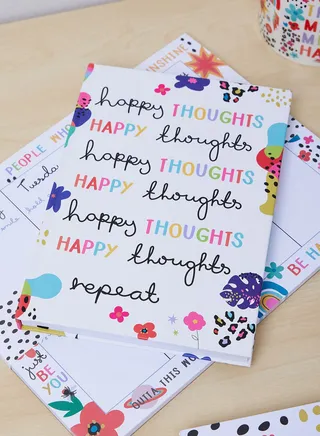 SUNSHINE
PEOPLE WHO
Tuesda
happy THOUGHTS
HAPPY thoughts
happy THOUGHTS
HAPPY thoughts
happy THOUGHTS
HAPPY thoughts
repeat
BE HA
just
BE
YOU
OUTTA THIS WO